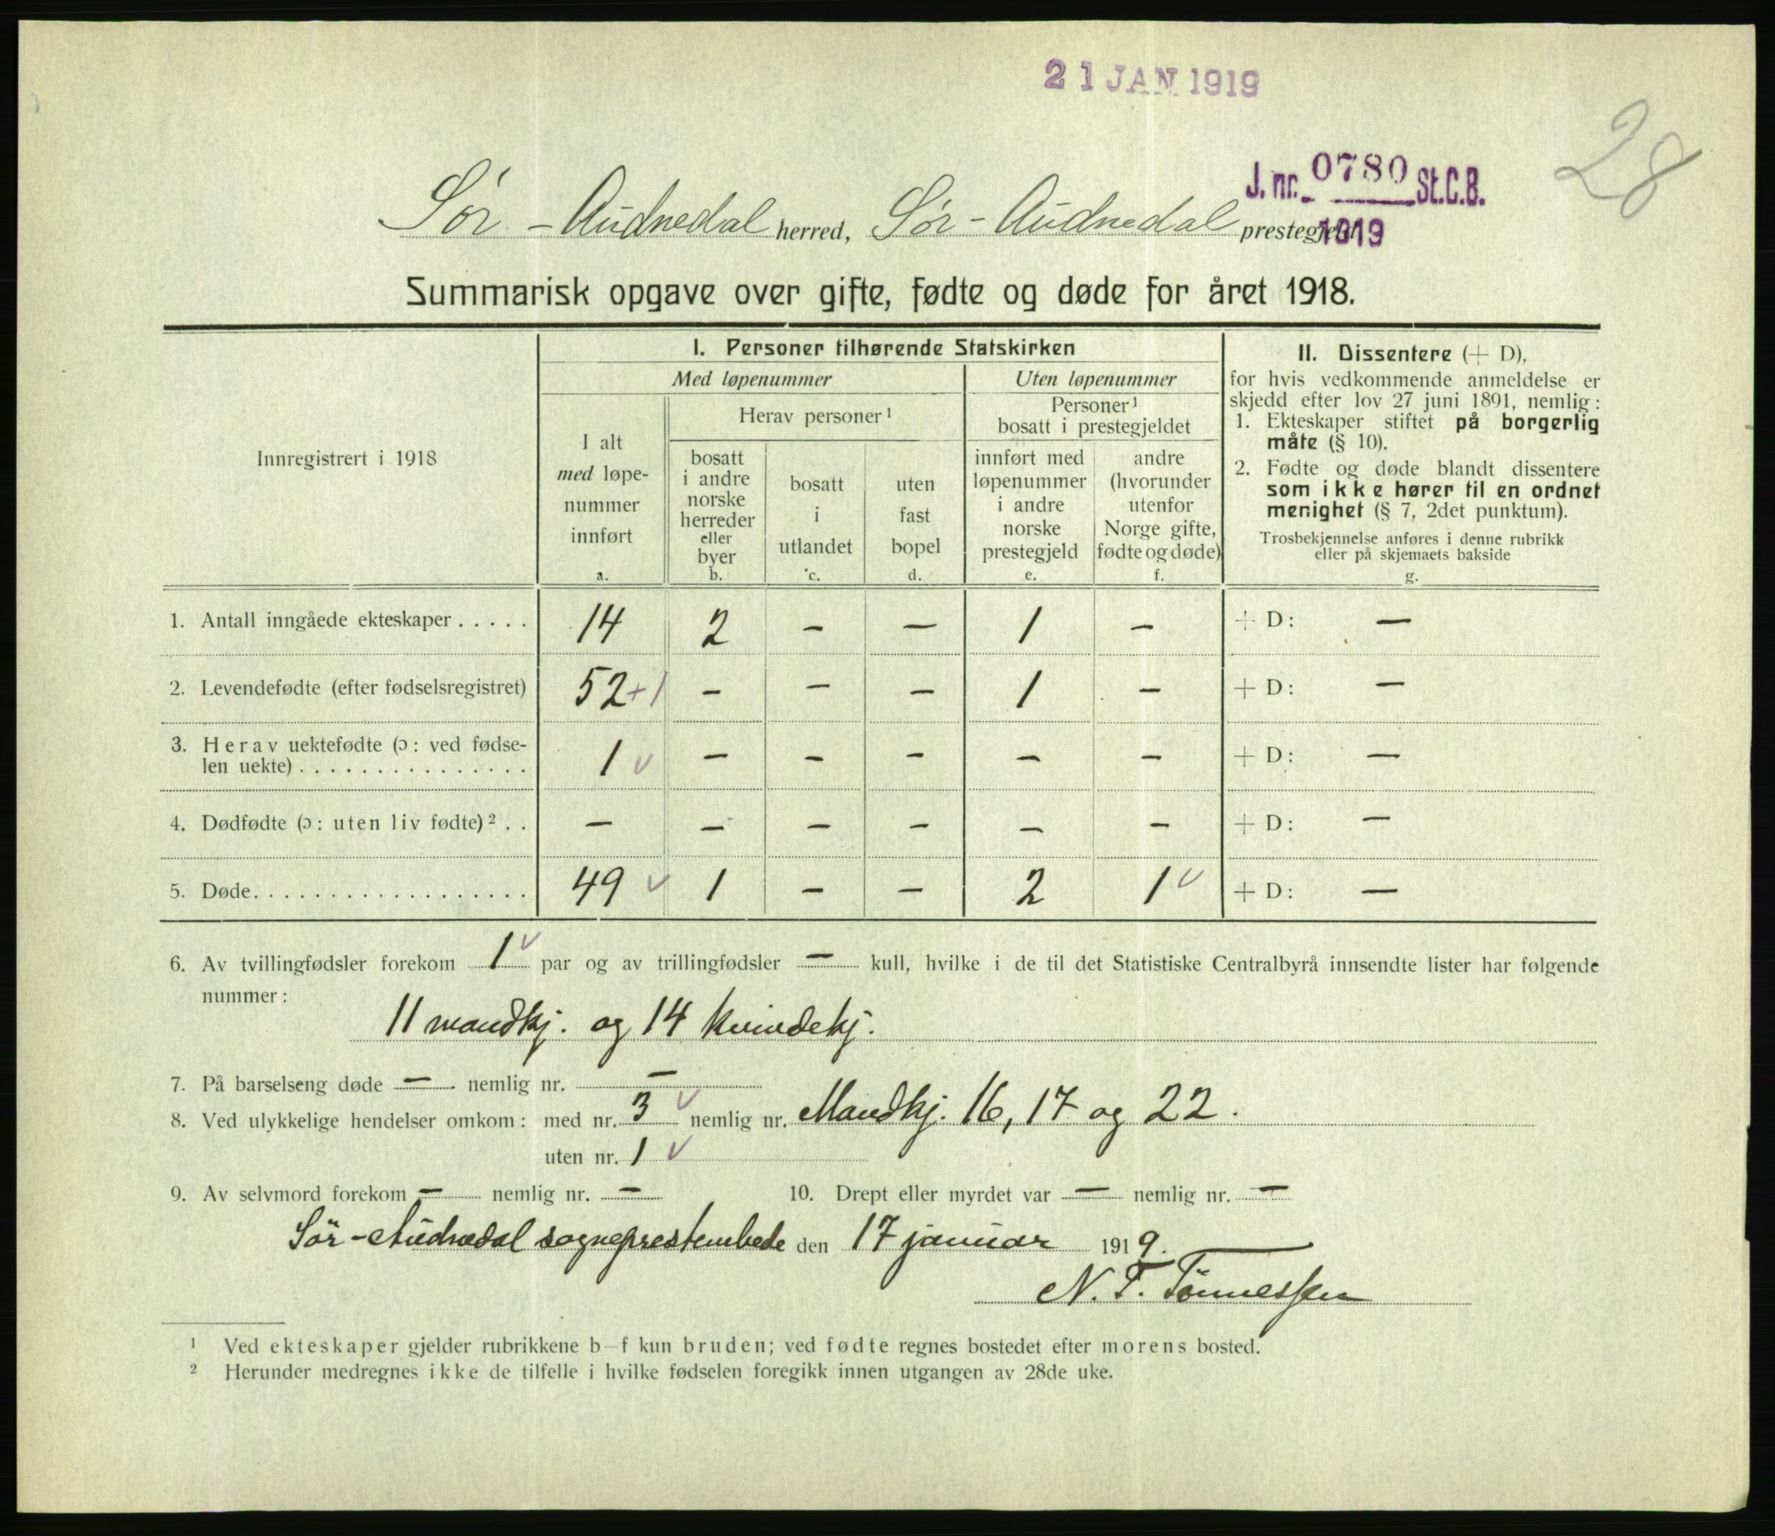 21 JAN 1919
28
J. nr. 0780 St.C.B.
1919
Sør-Audnedal herred, Sør-Audnedal
Summarisk opgave over gifte, fødte og døde for året 1918.
Innregistrert i 1918
I. Personer tilhørende Statskirken
Med løpenummer
Uten løpenummer
I alt
med løpe-
nummer
innført
a.
Herav personer¹
bosatt
i andre
norske
herreder
eller
byer
b.
bosatt
i
utlandet
c.
uten
fast
bopel
d.
Personer¹
bosatt i prestegjeldet
innført med
løpenummer
i andre
norske
prestegjeld
e.
andre
(hvorunder
utenfor
Norge gifte,
fødte og døde)
f.
II. Dissentere (+ D),
for hvis vedkommende anmeldelse er
skjedd efter lov 27 juni 1891, nemlig:
1. Ekteskaper stiftet på borgerlig
måte (§ 10).
2. Fødte og døde blandt dissentere
som ikke hører til en ordnet
menighet (§ 7, 2det punktum).
Trosbekjennelse anføres i denne rubrikk
eller på skjemaets bakside
g.
1. Antall inngåede ekteskaper . . . . . 14 2 – – 1 – + D: –
2. Levendefødte (efter fødselsregistret) 52+1 – – – 1 – + D: –
3. Herav uektefødte (ɔ: ved fødse-
len uekte) . . . . . . . . . . . . . . . 1 v – – – – – + D: –
4. Dødfødte (ɔ: uten liv fødte)² . . – – – – – – + D: –
5. Døde. . . . . . . . . . . . . . . . . . 49 v 1 – – 2 1 v + D: –
6. Av tvillingfødsler forekom 1 v par og av trillingfødsler – kull, hvilke i de til det Statistiske Centralbyrå innsendte lister har følgende
nummer:
11 mandkj. og 14 kvindekj.
7. På barselseng døde – nemlig nr. –
8. Ved ulykkelige hendelser omkom: med nr. 3 v nemlig nr. Mandkj. 16, 17 og 22.
uten nr. 1 v
9. Av selvmord forekom – nemlig nr. – 10. Drept eller myrdet var – nemlig nr. –
Sör-Audnedal sogneprestembede den 17 januar 1919.
N. T. Tönnessen
¹ Ved ekteskaper gjelder rubrikkene b–f kun bruden; ved fødte regnes bostedet efter morens bosted.
² Herunder medregnes ikke de tilfelle i hvilke fødselen foregikk innen utgangen av 28de uke.